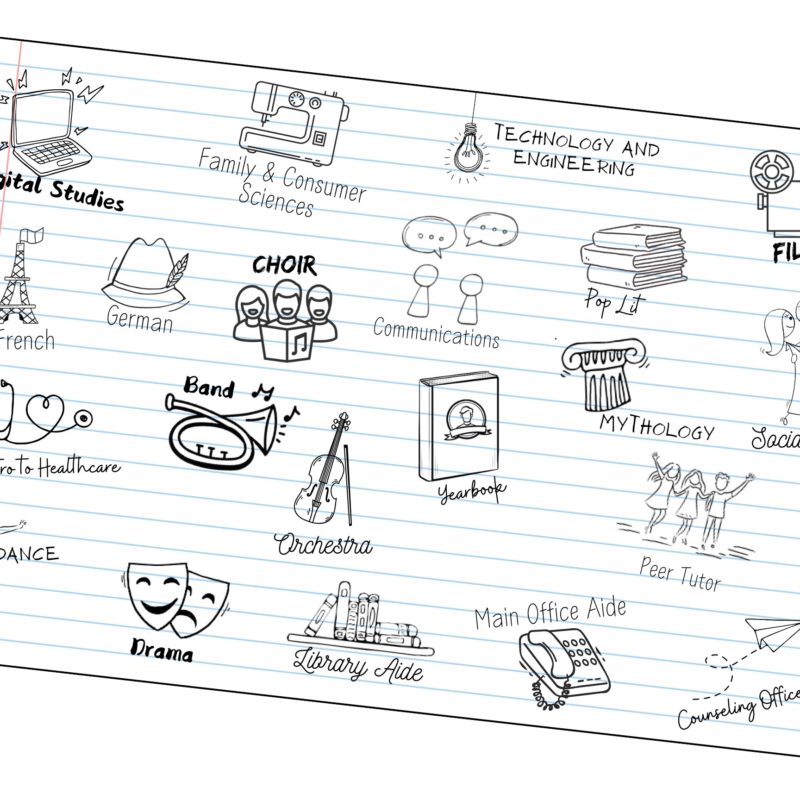 TECHNOLOGY AND
ENGINEERING
Family & Consumer
Sciences
Digital Studies
FIL
CHOIR
Pop Lit
German
Communications
French
Band
MYTHOLOGY
Social
Intro to Healthcare
Yearbook
Orchestra
DANCE
Peer Tutor
Main Office Aide
Drama
Library Aide
Counseling Office